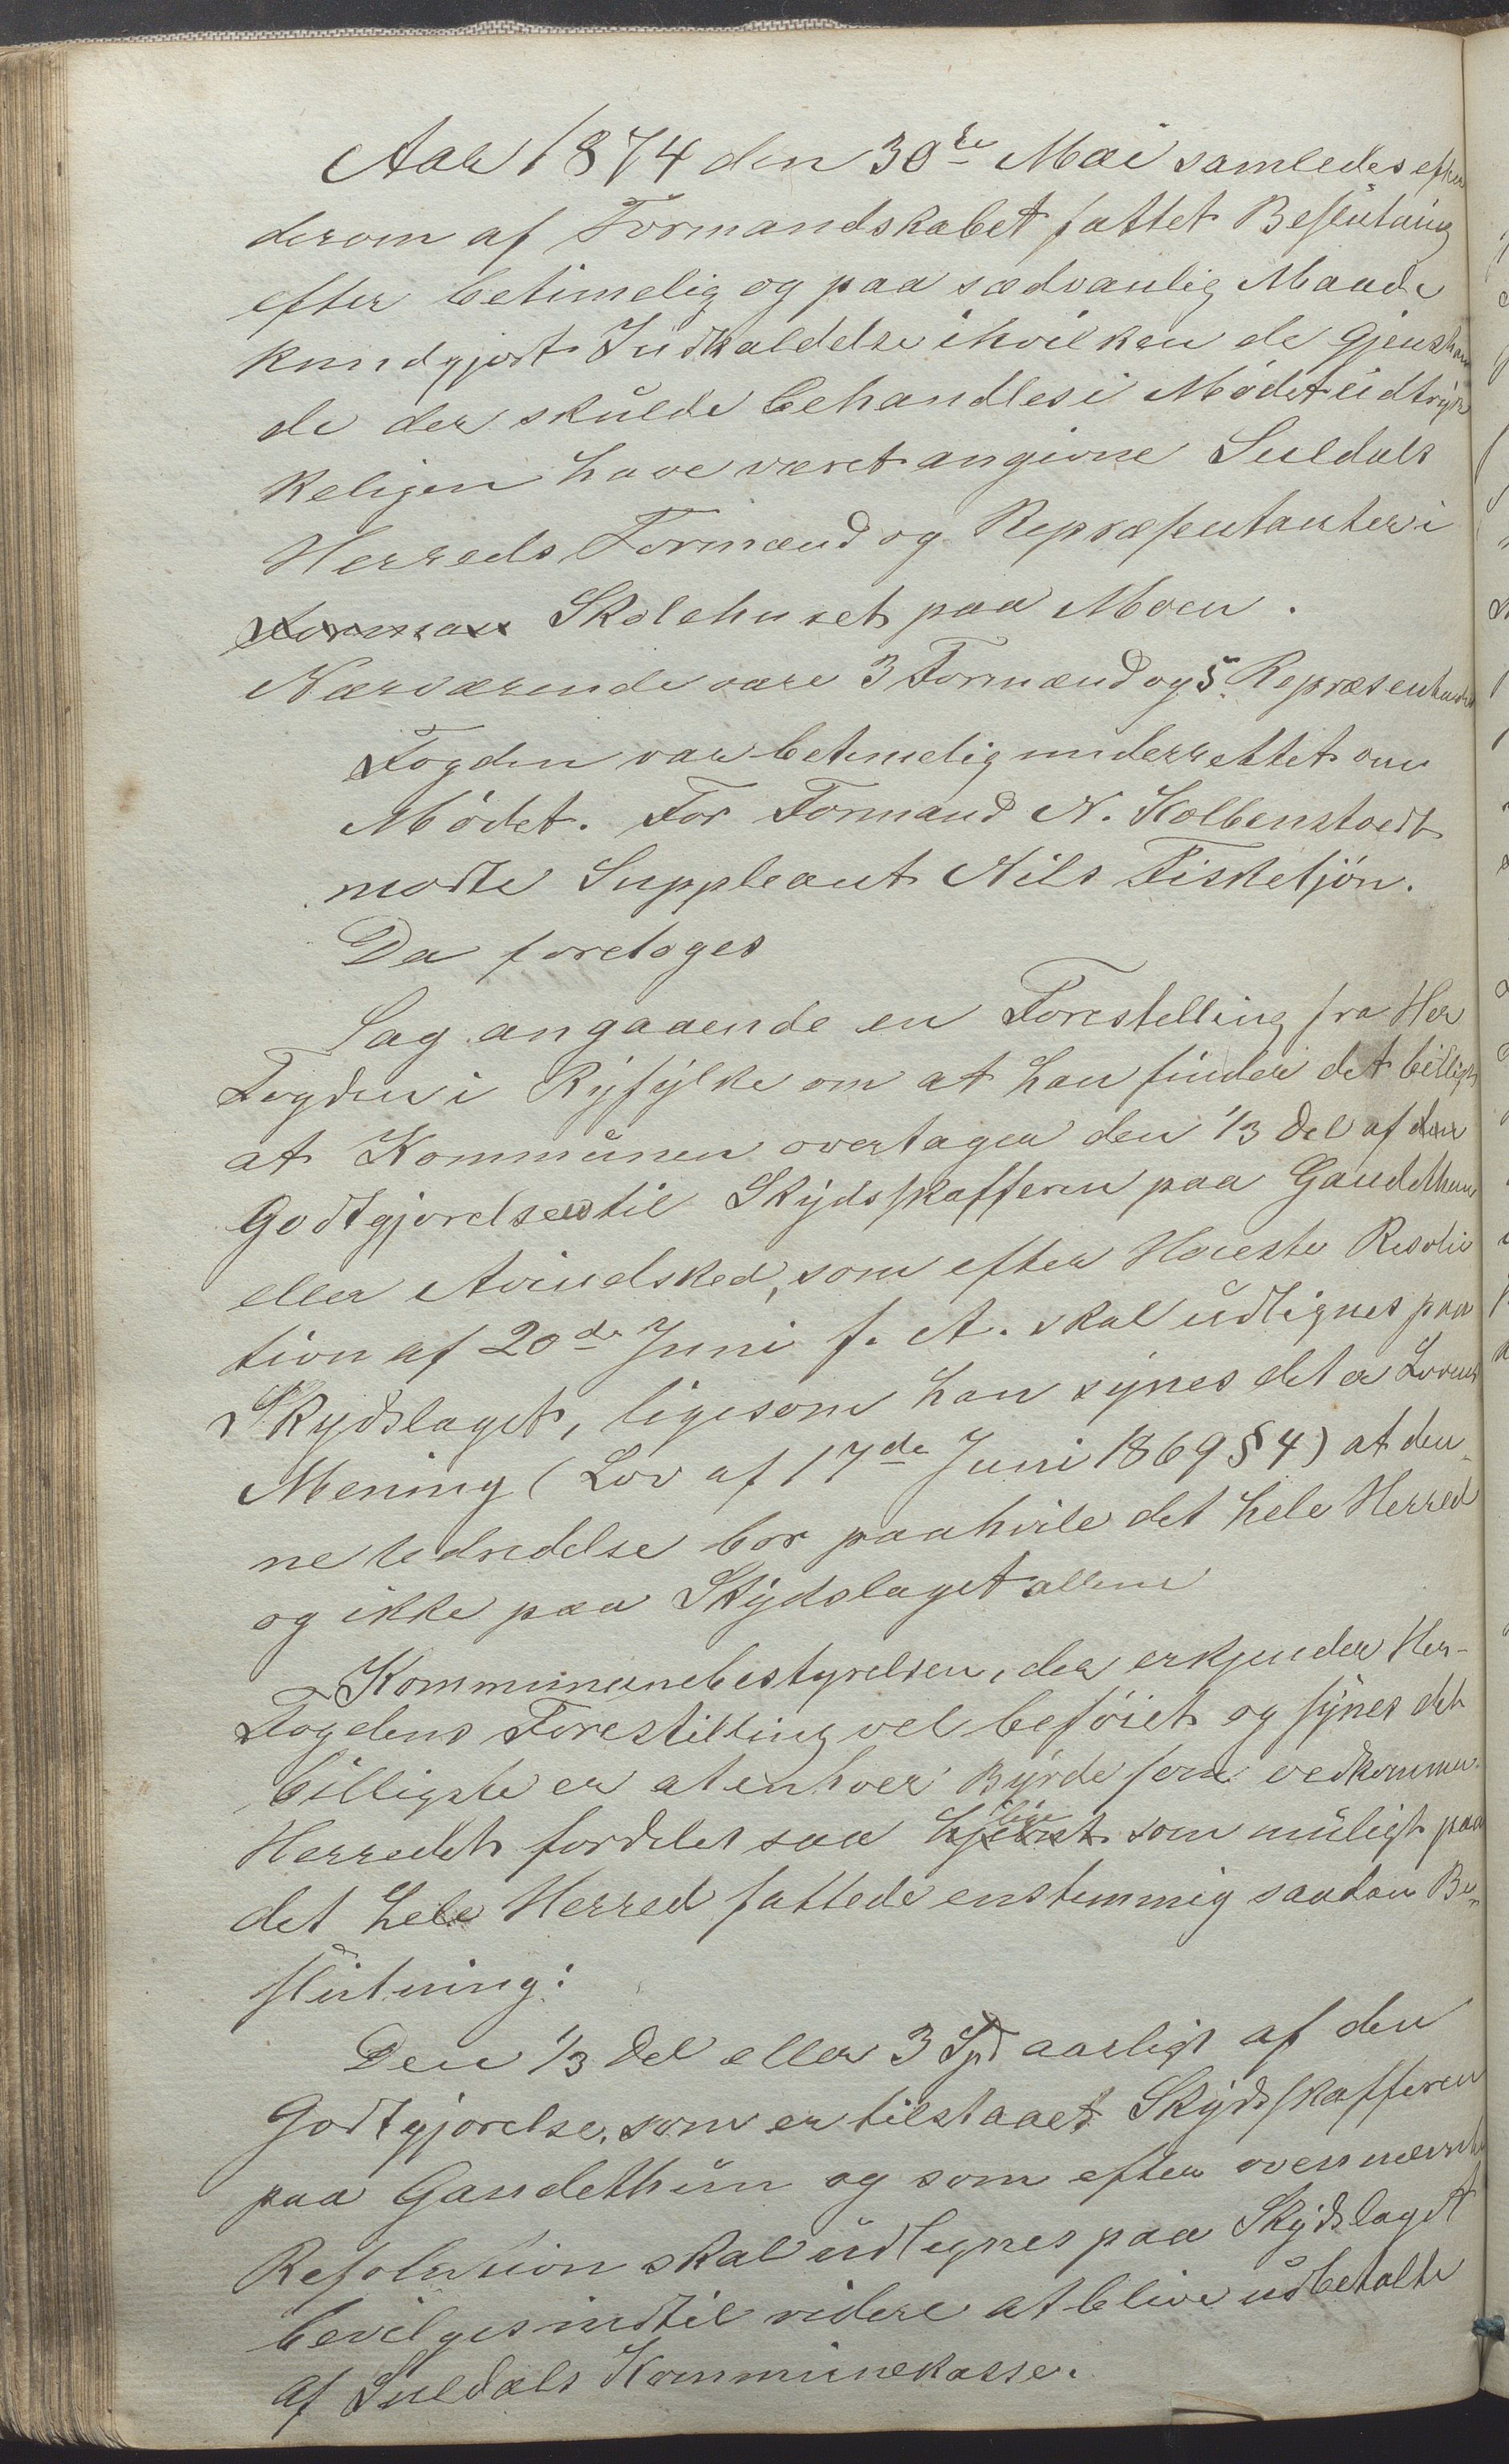 Aar 1874 den 30te Mai samledes efter
derom af Formandskabet fattet Beslutning
efter betimelig og paa sædvanlig Maade
kundgjort Indkaldelse ihvilken de Gjenstan
de der skulde behandles i Mødet udtryk
keligen have været angivne Suldals
Herreds Formænd og Repræsentanter i
Skolehuset paa Moen.
Nærværende vare 3 Formænd og 5 Repræsentanter
Fogden var betimelig underrettet om
Mødet. For Formand N. Kolbenstvedt
mødte Suppleant Nils Fisketjön.
Da foretoges
Sag angaaende en Forestelling fra Her
Fogden i Ryfylke om at han finder det billigt
at Kommunen overtager den 1/3 Del af den
Godtgjorelse til Skydsskafferen paa Gaudethun
eller Avindsked, som efter Høieste Resolu
tion af 20de Juni f. A. skal udlignes paa
Skydslaget, ligesom han synes det er Lovens
Mening (Lov af 17de Juni 1869 § 4) at den
ne Udredelse bor paahvile det hele Herred
og ikke paa Skydslaget allene
Kommunebestyrelsen, der erkjender Her-
Fogdens Forestilling vel beføiet og synes det
billigste er at enhver Byrde som vedkommer
Herredet fordeles saa lige som muligt paa
det hele Herred fattede enstemmig saadan Be-
slutning:
Den 1/3 Del eller 3 Spd aarligt af den
Godtgjorelse, som er tilstaaet Skydsskafferen
paa Gaudethun og som efter ovennævnte
Resolution skal udlignes paa Skydslaget
bevilges indtil videre at blive udbetalte
af Suldals Kommunekasse.